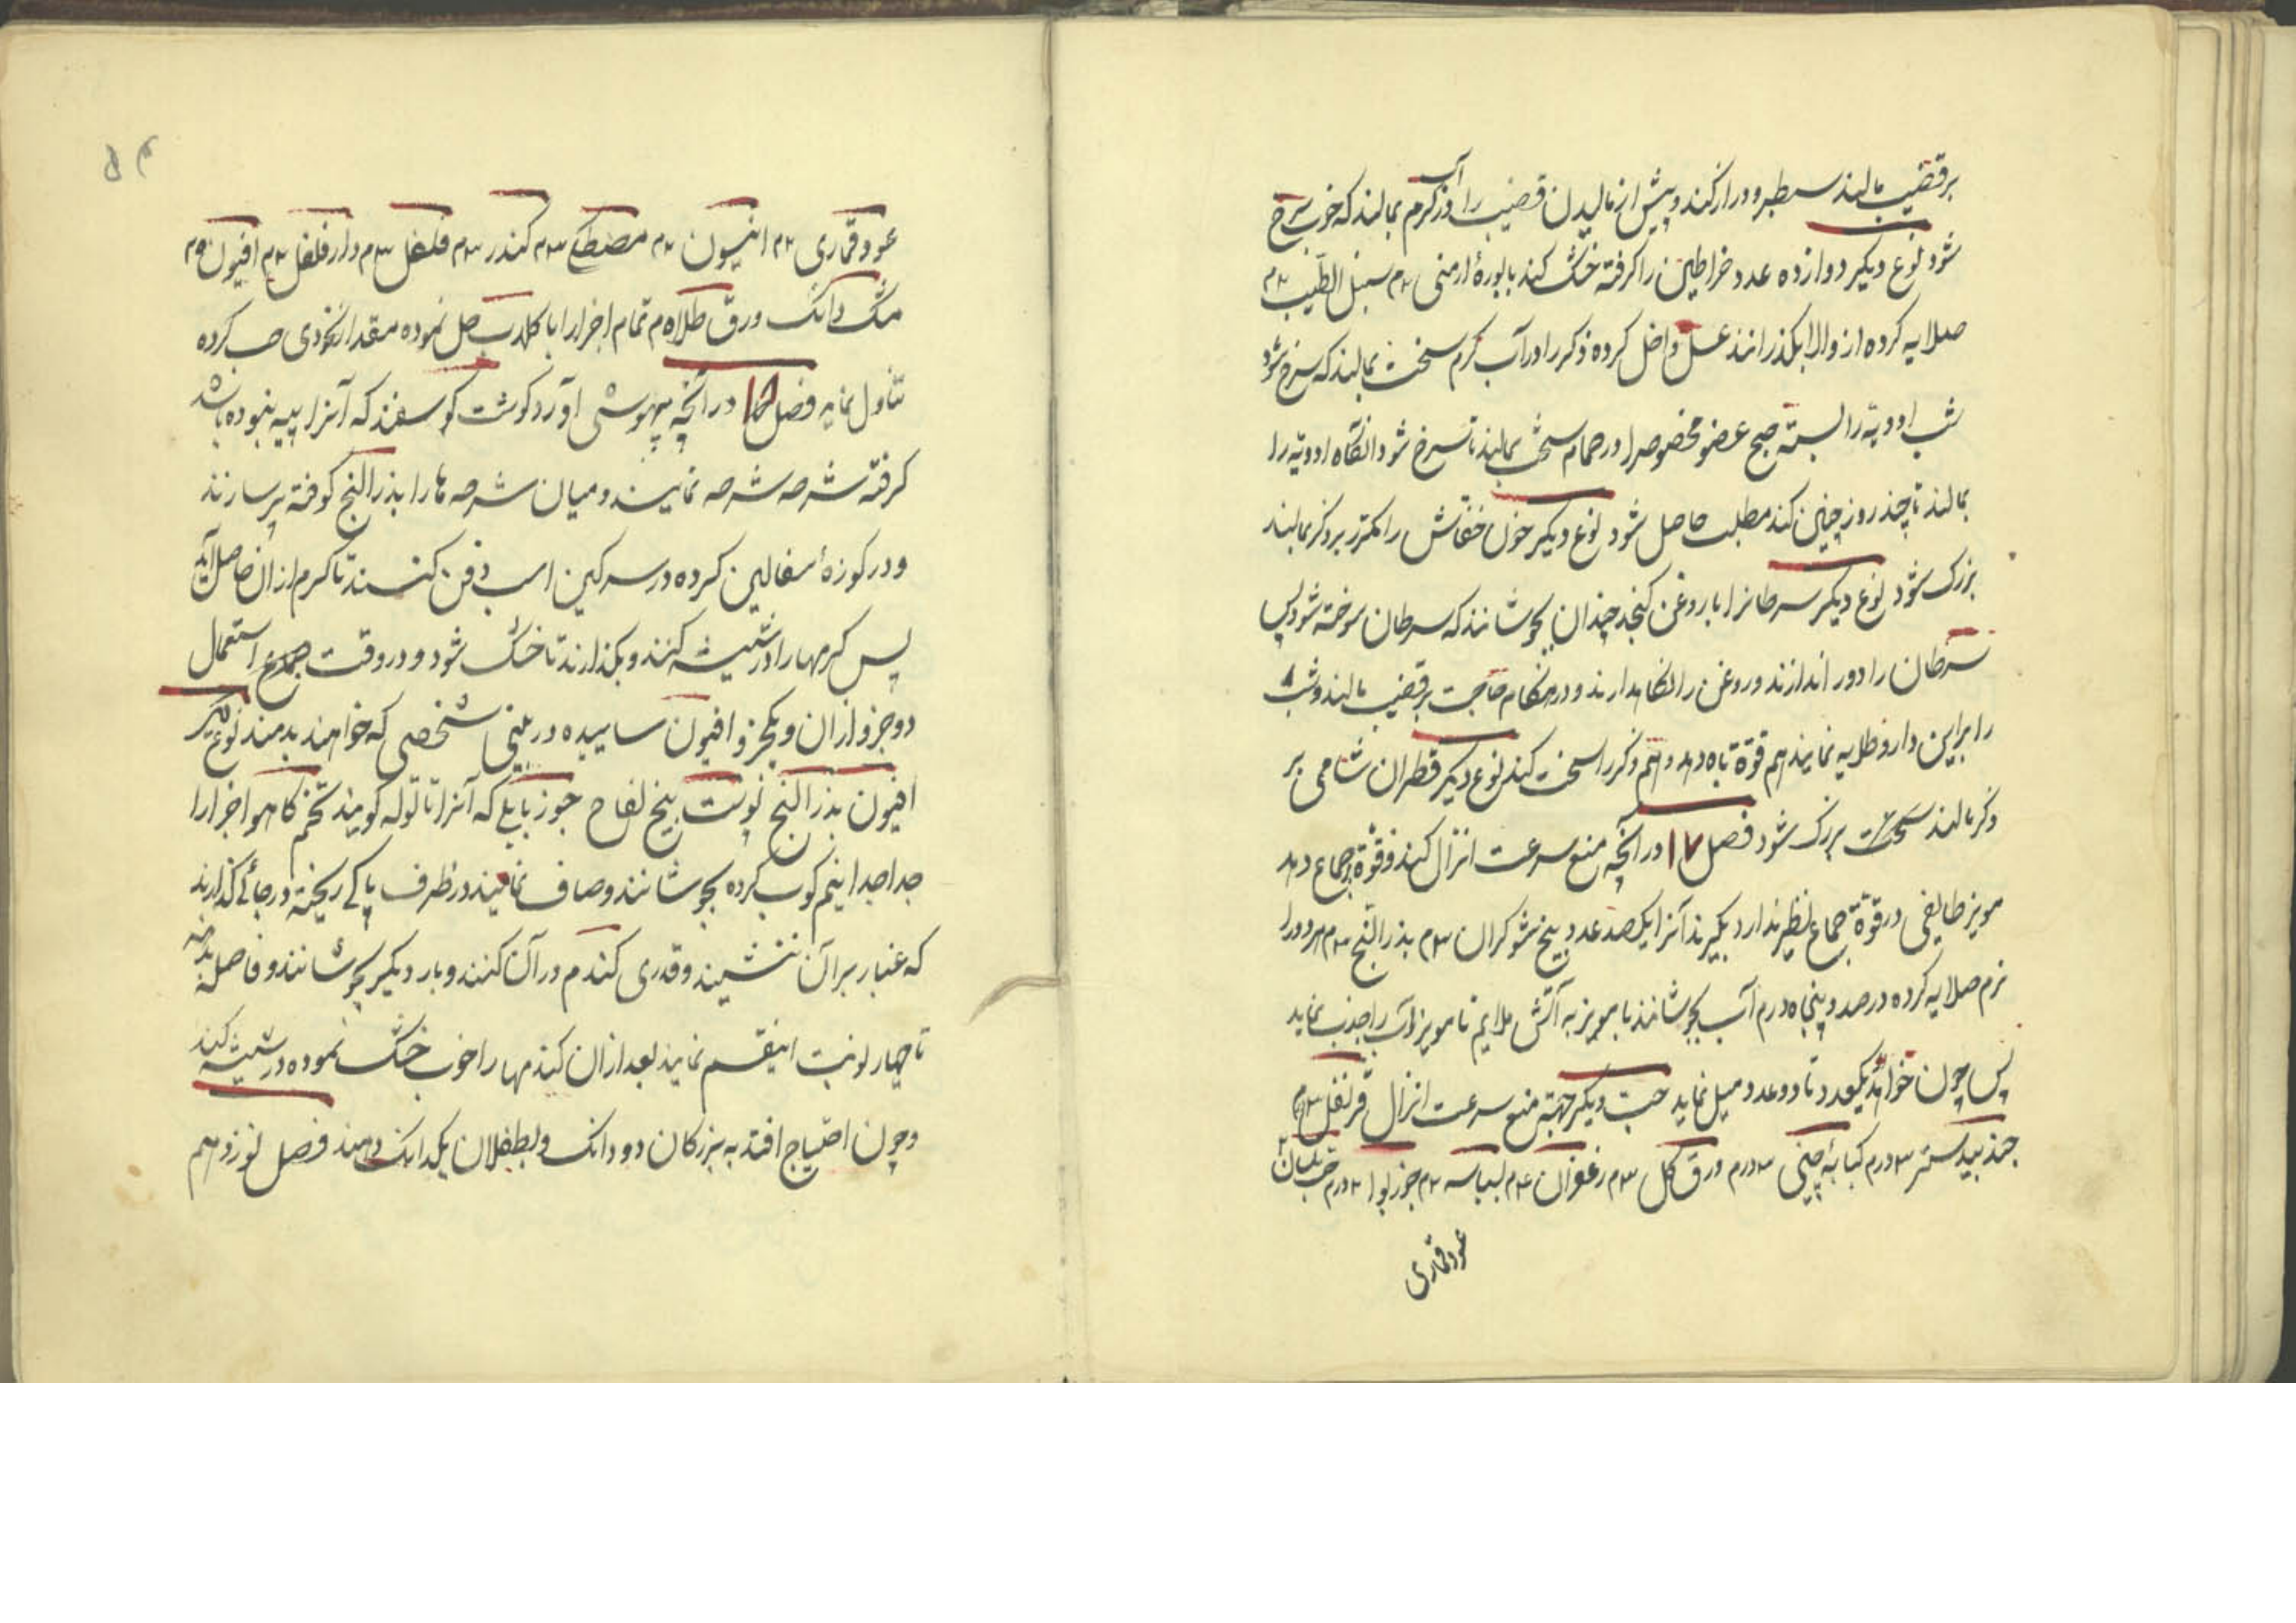 بر قضیب بمالند سطبر و دراز کند و پیش از مالیدن قضیب را در آب کرم بمالند که خوب سرخ
شود نوع دیکر دوازده عدد خراطین را کرفته خشک کند با بورهٔ ارمنی ۲م سنبل الطیب ۲م
صلایه کرده از والا بکذرانند عسل داخل کرده ذکر را در آب کرم سخت بمالند که سرخ شود
شب ادویه را بسته صبح عضو مخصوصرا در حمام سخت بمالند تا سرخ شود انکاه ادویه را
بمالند تا چند روز چنین کند مطلب حاصل شود نوع دیکر خون خفاش را مکرر بر ذکر بمالند
بزرک شود نوع دیکر سرطانرا با روغن کنجد چندان بجوشانند که سرطان سوخته شود پس
سرطان را دور اندازند و روغن را نکاهدارند و در هنکام حاجت بر قضیب بمالند و شب
را براین دارو طلایه نمایند هم قوة باه دهد و هم ذکر را سخت کند نوع دیکر قطران شامی بر
ذکر بمالند سخت بزرک شود فصل ۱۷ در آنچه منع سرعت انزال کند و قوة جماع دهد
مویز طایفی در قوة جماع نظیر ندارد بکیرند آنرا یکصد عدد و بیخ شوکران ۳م بذر النج ۳م هردورا
نرم صلایه کرده در صد و پنجاه درم آب بجوشانند با مویز به آتش ملایم تا مویز آب را جذب نماید
پس چون خواهد یکعدد تا دو عدد میل نماید حب دیکر جهة منع سرعت انزال قرنفل ۳م
جند بیدستر ۳درم کبابهٔ چینی ۳درم ورق کل ۳م زعفران ۴م بسباسه ۲م جوز بوا ۲درم حب بلسان
عود قماری
۵۴
عود قماری ۲م انیسون ۲م مصطکی ۳م کندر ۳م فلفل ۳م دار فلفل ۳م افیون ۵م
مشک دانک ورق طلا ۵م تمام اجزا را با کلاب حل نموده مقدار نخودی حب کرده
تناول نماید فصل ۱۸ در آنچه بیهوشی آورد کوشت کوسفند که آنرا پیه نبوده باشد
کرفته شرحه شرحه نمایند و میان شرحه ها را بذر النج کوفته پر سازند
و در کوزهٔ سفالین کرده در سرکین اسب دفن کنند تا کرم از ان حاصل آید
پس کرمها را در شیشه کنند و بکذارند تا خشک شود و در وقت استعمال
دو جزو از ان و یکجزو افیون ساییده در بینی شخصی که خواهند بدمند نوع دیکر
افیون بذر النج پوست بیخ لفاح جوز ماثل که آنرا تاتوله کویند تخم کاهو اجزا را
جدا جدا نیم کوب کرده بجوشانند و صاف نمایند در ظرف پاکی ریخته در جائی کذارند
که غبار بر آن ننشیند و قدری کندم در آن کنند و بار دیکر بجوشانند و فاصله بدهند
تا چهار نوبت اینقسم نمایند بعد از ان کندمها را خوب خشک نموده در شیشه کنند
و چون احتیاج افتد به بزرکان دو دانک و بطفلان یکدانک دهند فصل نوزدهم